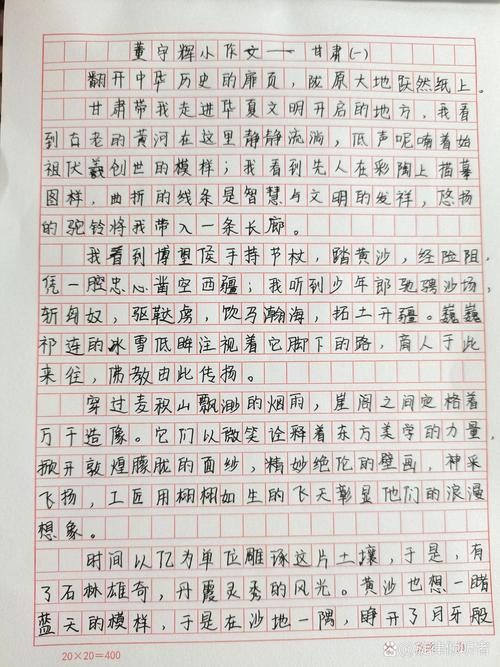 董宇辉小作文——甘肃(一)
翻开中华历史的扉页，陇原大地跃然纸上。
甘肃带我走进华夏文明开启的地方，我看
到古老的黄河在这里静静流淌，低声呢喃着始
祖伏羲创世的模样；我看到先人在彩陶上描摹
图样，曲折的线条是智慧与文明的发祥，悠扬
的驼铃将我带入一条长廊。
我看到博望侯手持节杖，踏黄沙，经险阻，
凭一腔忠心凿空西疆；我听到少年郎驰骋沙场，
斩匈奴，驱鞑虏，饮马瀚海，拓土开疆。巍巍
祁连的冰雪低眸注视着它脚下的路，商人于此
来往，佛教由此传扬。
穿过麦积山飘渺的烟雨，崖阁之间定格着
万千造像。它们以微笑诠释着东方美学的力量，
掀开敦煌朦胧的面纱，精妙绝伦的壁画，神采
飞扬，工匠用栩栩如生的飞天彰显他们的浪漫
想象。
时间以亿为单位雕琢这片土壤，于是，有
了石林雄奇，丹霞灵秀的风光。黄沙也想一睹
蓝天的模样，于是在沙地一隅，睁开了月牙般
20×20=400